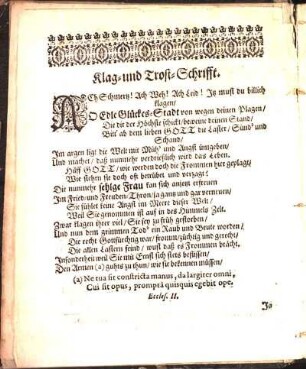 Klag-und Trost-Schrifft.
ACh Schmertz! Ach Weh! Ach Leid! Jtz must du billich
klagen/
O Edle Glückes-Stadt von wegen deinen Plagen/
Die dir der Höchste schickt/ bewein deinen Stand/
Bitt' ab dem lieben GOTT die Laster/ Sünd' und
Schand/
Im argen ligt die Welt mit Müh' und Angst ümgeben/
Und machet/ daß nunmehr verdrießlich wird das Leben.
Hilff GOTT/ wie werden doch die Frommen hier geplagt/
Wie stehen sie doch offt betrübet und verzagt!
Die nunmehr sehlge Frau kan sich anjetzt erfreuen
Im Fried-und Freuden-Thron/ ja gantz und gar verneuen/
Sie fühlet keine Angst im Meere dieser Welt/
Weil Sie genommen ist auf in des Himmels Zelt.
Zwar klagen ihrer viel/ Sie sey zu früh gestorben/
Und nun dem grimmen Tod' ein Raub und Beute worden/
Die recht Gottfürchtig war/ fromm/ züchtig und gerecht/
Die allen Lastern feind/ wust/ daß es Frommen brächt.
Insonderheit weil Sie mit Ernst sich stets beflissen/
Den Armen (a) guhts zu thun/ wie sie bekennen müssen/
(a) Ne tua sit constricta manus, da largiter omni,
Cui sit opus, promptâ quisquis egebit ope,
Eccles. II.
Ja